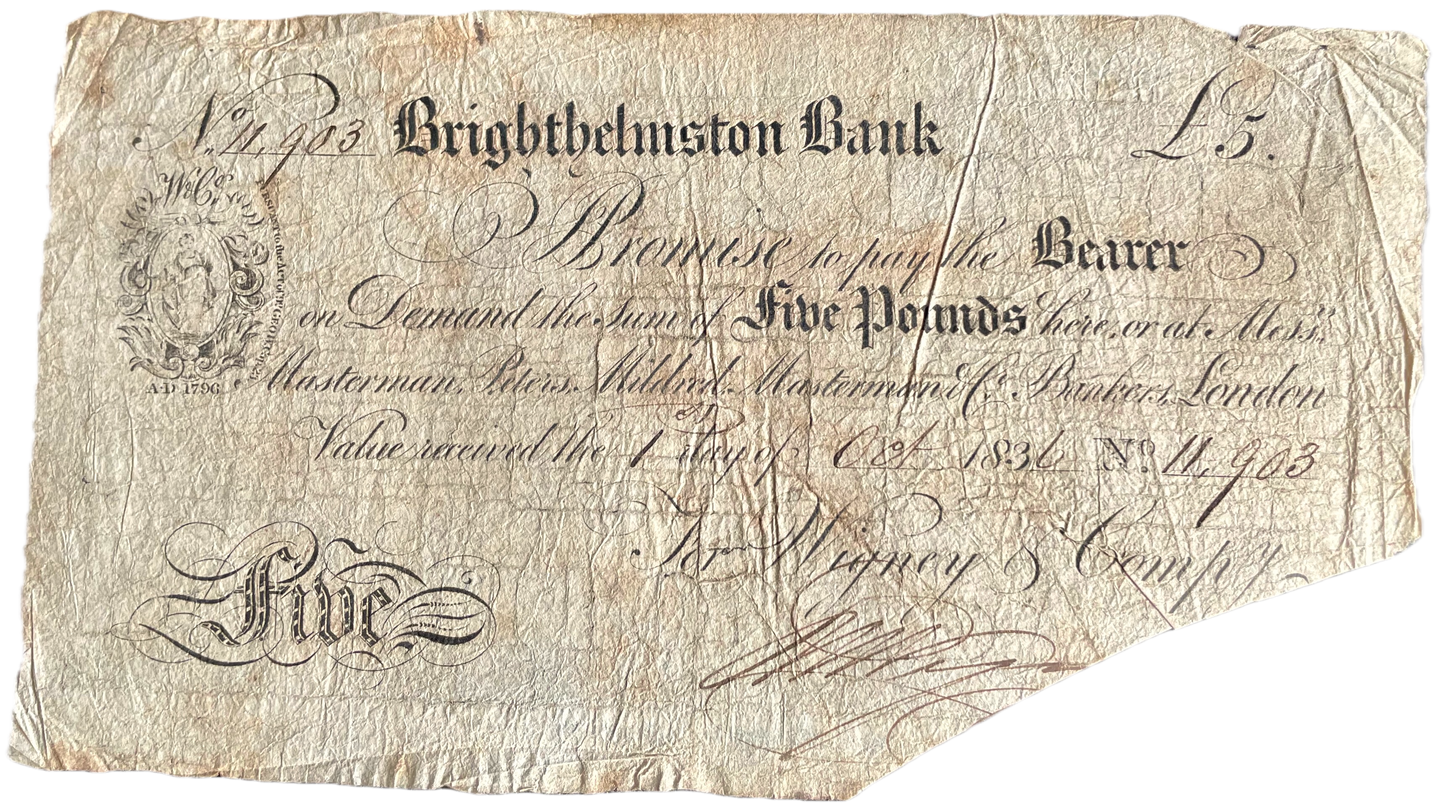 No. 11,903 Brighthelmston Bank £5.
W & Co.
I Promise to pay the Bearer
on Demand the Sum of Five Pounds here, or at Messrs.
Masterman, Peters, Mildred, Masterman & Co. Bankers, London
A.D 1796
Value received the 1st day of Oct 1836 No. 11,903
For Wigney & Compy
Five